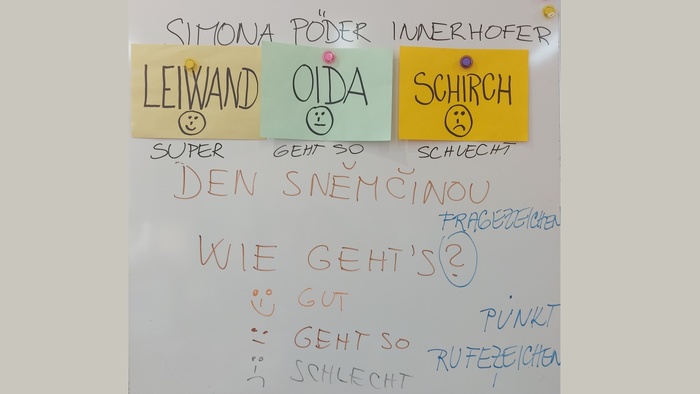 SIMONA PÖDER INNERHOFER
LEIWAND
OIDA
SCHIRCH
SUPER
GEHT SO
SCHLECHT
DEN S NĚMČINOU
FRAGEZEICHEN
WIE GEHT'S?
GUT
PUNKT
GEHT SO
RUFEZEICHEN
SCHLECHT
!